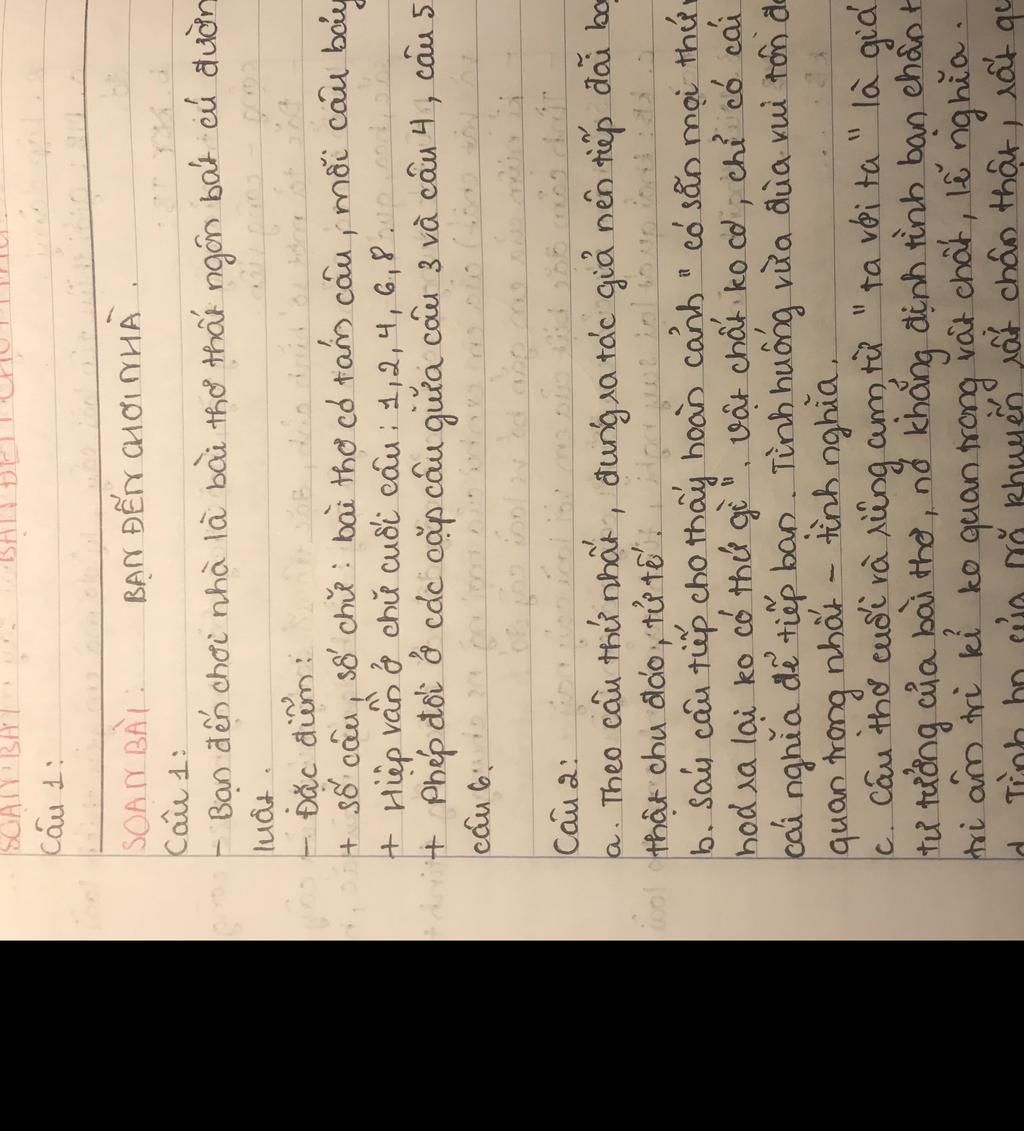 SOẠN BÀI : BẠN ĐẾN CHƠI NHÀ
Câu 1:
SOẠN BÀI : BẠN ĐẾN CHƠI NHÀ.
Câu 1:
- Bạn đến chơi nhà là bài thơ thất ngôn bát cú đườn
luật.
- Đặc điểm:
+ Số câu, số chữ: bài thơ có tám câu, mỗi câu bảy
+ Hiệp vần ở chữ cuối câu: 1, 2, 4, 6, 8.
+ Phép đối ở các cặp câu giữa câu 3 và câu 4, câu 5
câu 6.
Câu 2:
a. Theo câu thứ nhất, đúng ra tác giả nên tiếp đãi bạ
thật chu đáo, tử tế.
b. Sáu câu tiếp cho thấy hoàn cảnh " có sẵn mọi thứ
hoá ra lại ko có thứ gì". vật chất ko có, chỉ có cái
cái nghĩa để tiếp bạn. Tình huống vừa đùa vui tôn
quan trọng nhất - tình nghĩa.
c. Câu thơ cuối và riêng cụm từ " ta với ta " là giá
tư tưởng của bài thơ, nó khẳng định tình bạn chân
tri âm tri kỉ ko quan trọng vật chất, lễ nghĩa.
d. Tình bạn của Ng khuyến rất chân thật, rất